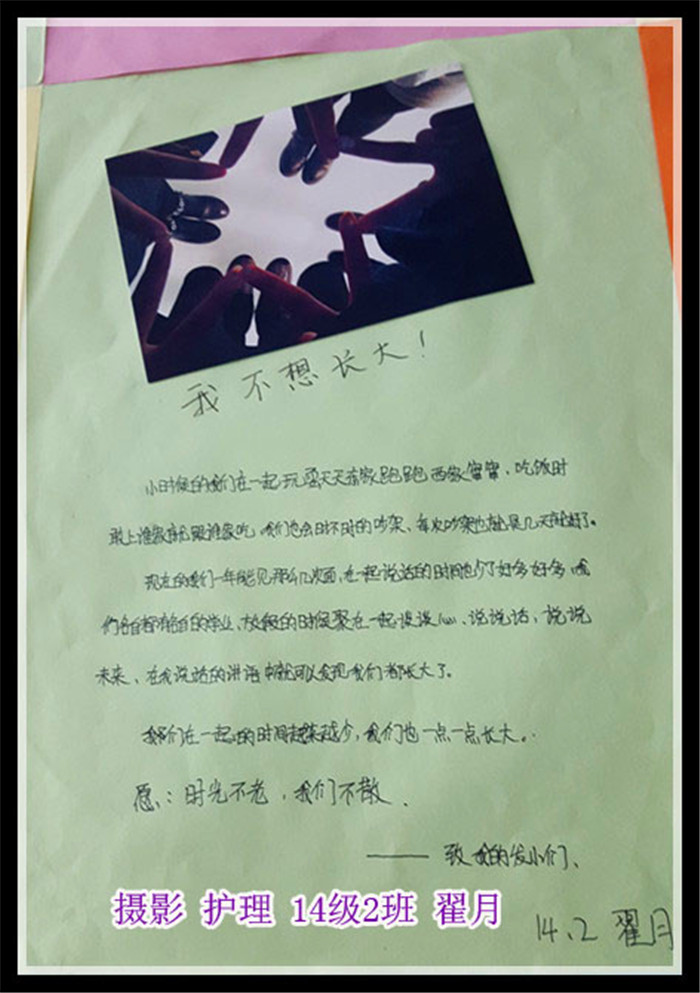 我不想长大!
小时候的我们在一起玩耍天天东家跑跑西家窜窜,吃饭时
敢上谁家就跟谁家吃,我们也会时不时的吵架、每次吵架也就是几天就好了。
现在的我们一年能见那么几次面,在一起说话的时间也少了好多好多,我
们各自都有各自的学业、放假的时候聚在一起谈谈心、说说话,说说
未来、在我说话的讲语中就可以发现我们都长大了。
我们在一起的时间越来越少,我们也一点一点长大。
愿:时光不老,我们不散、
—— 致我的发小们、
14、2 翟月
摄影 护理 14级2班 翟月